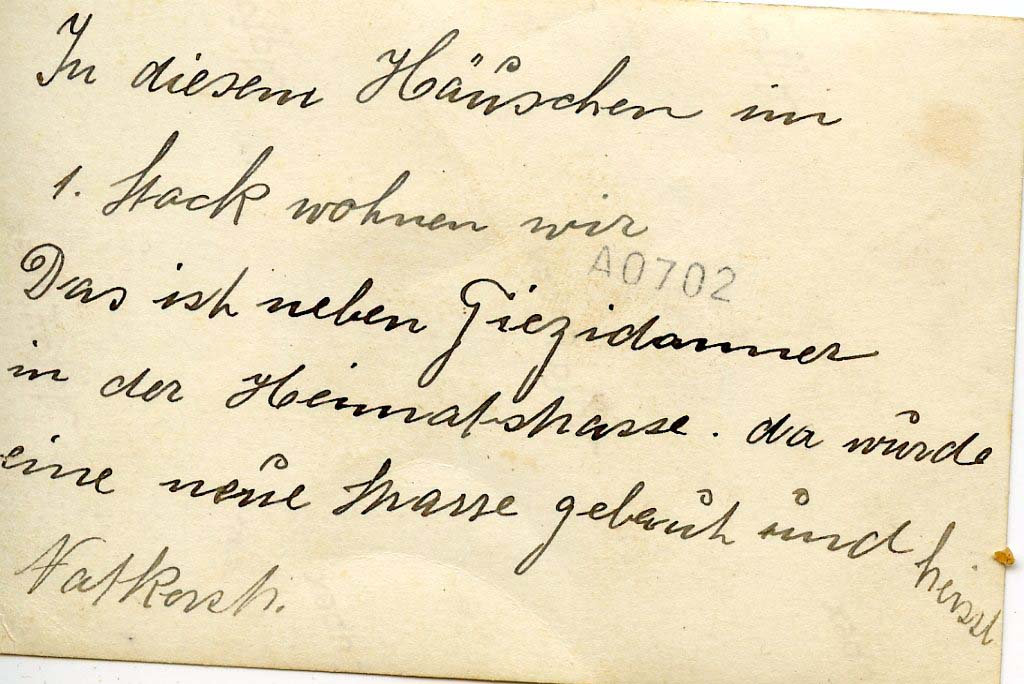 In diesem Häuschen im
1. Stock wohnen wir
A0702
Das ist neben Tiezidanner
in der Heimatstrasse. da wurde
eine neue Strasse gebaut und heisst
Notkerstr.